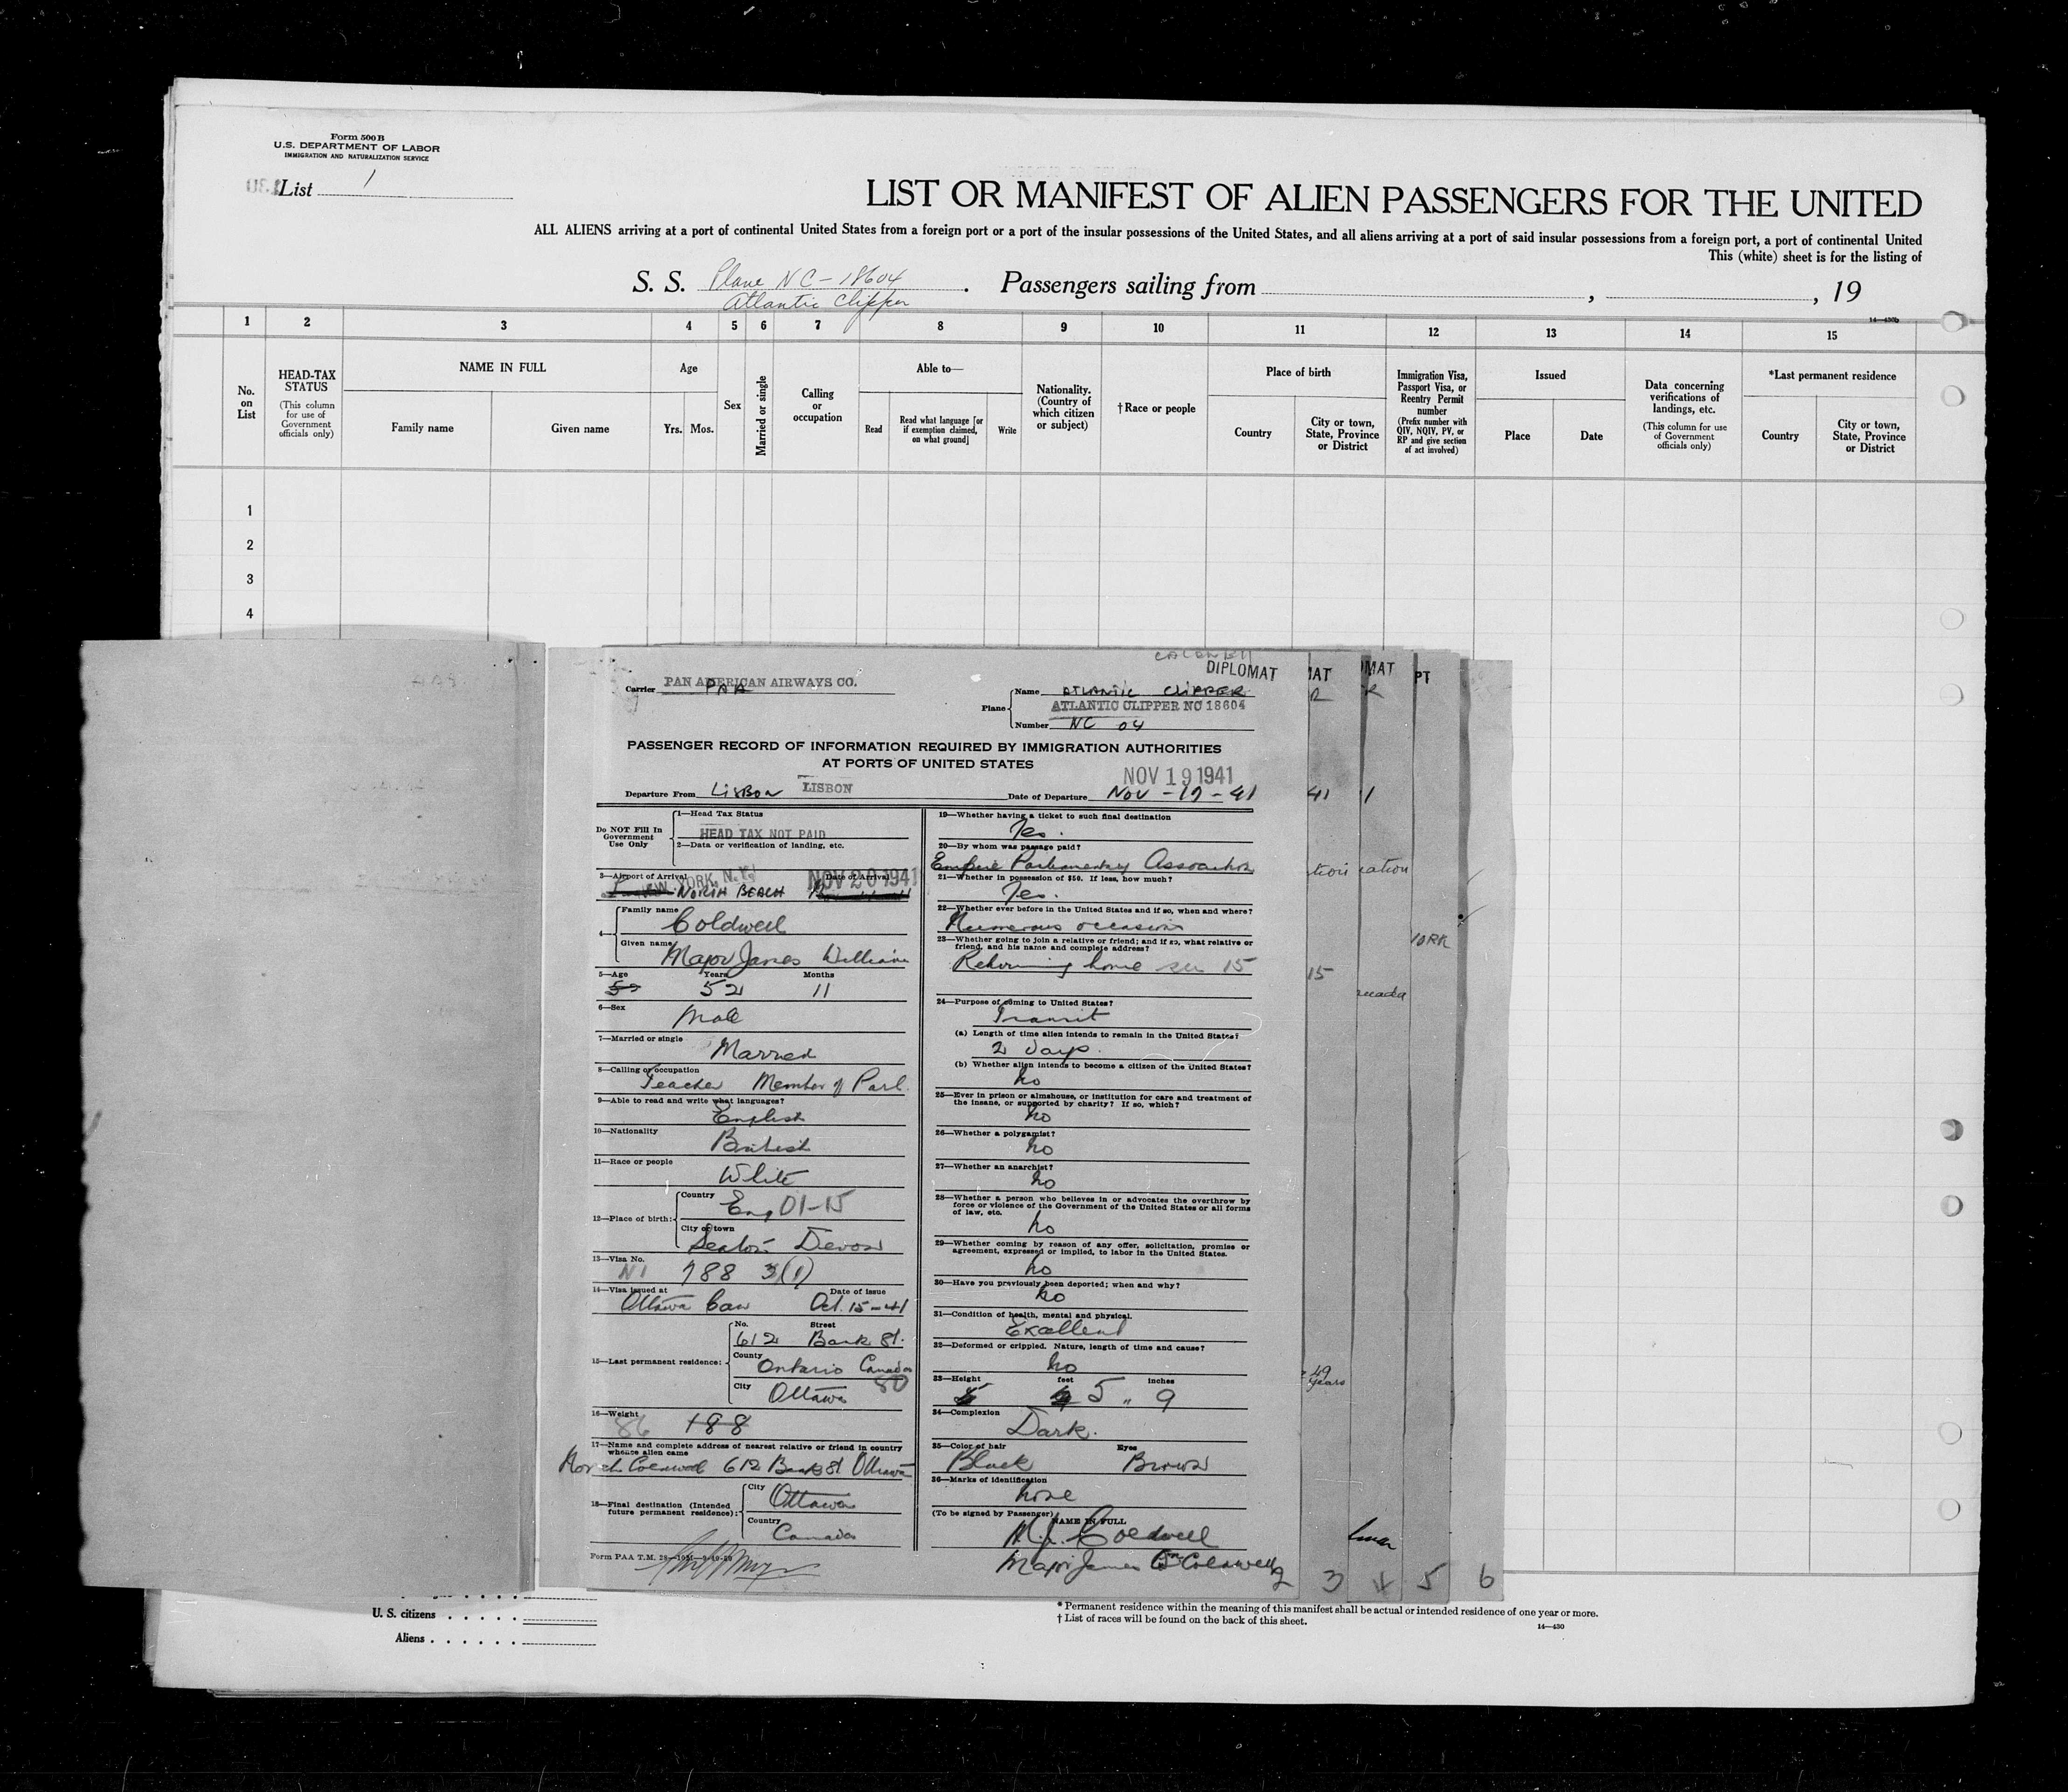 Form 500 B
U.S. DEPARTMENT OF LABOR
IMMIGRATION AND NATURALIZATION SERVICE
List 1
LIST OR MANIFEST OF ALIEN PASSENGERS FOR THE UNITED
ALL ALIENS arriving at a port of continental United States from a foreign port or a port of the insular possessions of the United States, and all aliens arriving at a port of said insular possessions from a foreign port, a port of continental United
This (white) sheet is for the listing of
S. S. Plane NC-18604
Atlantic Clipper
Passengers sailing from , , 19
14—430b
1 2 3 4 5 6 7 8 9 10 11 12 13 14 15
No. on List
HEAD-TAX STATUS
(This column for use of Government officials only)
NAME IN FULL
Family name Given name
Age
Yrs. Mos.
Sex
Married or single
Calling or occupation
Able to—
Read
Read what language [or if exemption claimed, on what ground]
Write
Nationality. (Country of which citizen or subject)
†Race or people
Place of birth
Country
City or town, State, Province or District
Immigration Visa, Passport Visa, or Reentry Permit number
(Prefix number with QIV, NQIV, PV, or RP and give section of act involved)
Issued
Place Date
Data concerning verifications of landings, etc.
(This column for use of Government officials only)
*Last permanent residence
Country
City or town, State, Province or District
1
2
3
4
DIPLOMAT
MAT
MAT
PT
Carrier PAN AMERICAN AIRWAYS CO.
PAA
Plane
Name ATLANTIC CLIPPER
ATLANTIC CLIPPER NC 18604
Number NC 04
PASSENGER RECORD OF INFORMATION REQUIRED BY IMMIGRATION AUTHORITIES
AT PORTS OF UNITED STATES
NOV 19 1941
Departure From Lisbon LISBON
Date of Departure Nov-19-41
41
Do NOT Fill In
Government
Use Only
1—Head Tax Status
HEAD TAX NOT PAID
2—Data or verification of landing, etc.
3—Airport of Arrival
NEW YORK, N.Y.
NORTH BEACH
Date of Arrival
NOV 20 1941
4—
Family name
Coldwell
Given name
Major James William
5—Age Years Months
52 11
6—Sex
Male
7—Married or single
Married
8—Calling or occupation
Teacher Member of Parl.
9—Able to read and write what languages?
English
10—Nationality
British
11—Race or people
White
12—Place of birth:
Country
Eng 01-15
City or town
Seaton Devon
13—Visa No.
788 3(1)
14—Visa issued at Date of issue
Ottawa Can Oct. 15-41
15—Last permanent residence:
No. Street
612 Bank St.
County
Ontario Canada
80
City
Ottawa
16—Weight
86 198
17—Name and complete address of nearest relative or friend in country
whence alien came
Coldwell 612 Bank St Ottawa
18—Final destination (Intended
future permanent residence):
City
Ottawa
Country
Canada
Form PAA T.M. 28—10M—9-19-39
19—Whether having a ticket to such final destination
Yes.
20—By whom was passage paid?
Empire Parliamentary Association
21—Whether in possession of $50. If less, how much?
Yes.
22—Whether ever before in the United States and if so, when and where?
Numerous occasions
23—Whether going to join a relative or friend; and if so, what relative or
friend, and his name and complete address?
Returning home see 15
24—Purpose of coming to United States?
Transit
(a) Length of time alien intends to remain in the United States?
2 days.
(b) Whether alien intends to become a citizen of the United States?
no
25—Ever in prison or almshouse, or institution for care and treatment of
the insane, or supported by charity? If so, which?
no
26—Whether a polygamist?
no
27—Whether an anarchist?
no
28—Whether a person who believes in or advocates the overthrow by
force or violence of the Government of the United States or all forms
of law, etc.
no
29—Whether coming by reason of any offer, solicitation, promise or
agreement, expressed or implied, to labor in the United States.
no
30—Have you previously been deported; when and why?
no
31—Condition of health, mental and physical.
Excellent
32—Deformed or crippled. Nature, length of time and cause?
no
33—Height feet inches
5 " 9
34—Complexion
Dark.
35—Color of hair Eyes
Black Brown
36—Marks of identification
none
(To be signed by Passenger)
NAME IN FULL
M.J. Coldwell
Major James W Coldwell
2 3 4 5 6
YORK
15
49
years
U. S. citizens
Aliens
* Permanent residence within the meaning of this manifest shall be actual or intended residence of one year or more.
† List of races will be found on the back of this sheet.
14—430